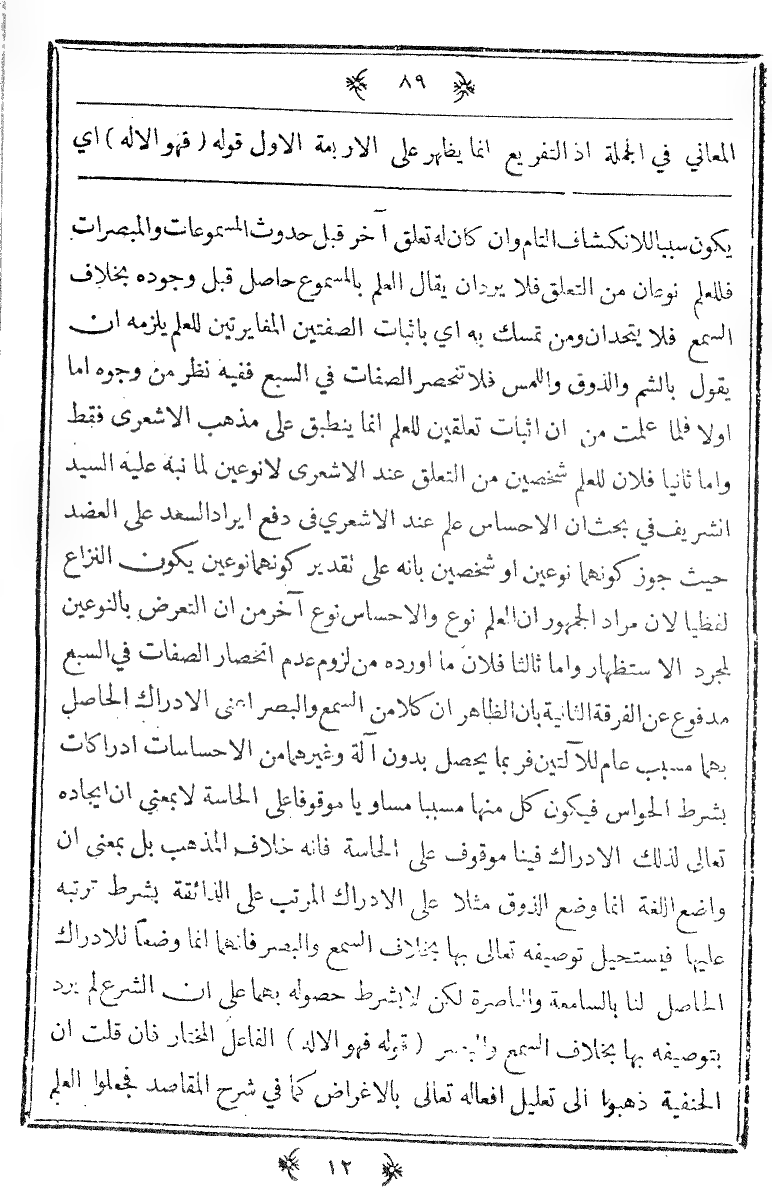 ٨٩
المعاني في الجملة اذ التفريع انما يظهر على الاربعة الاول قوله ( فهو الاله ) اي
يكون سببا للانكشاف التام وان كان له تعلق آخر قبل حدوث المسموعات والمبصرات
فللعلم نوعان من التعلق فلا يردان يقال العلم بالمسموع حاصل قبل وجوده بخلاف
السمع فلا يتحدان ومن تمسك به اي باثبات الصفتين المغايرتين للعلم يلزمه ان
يقول بالشم والذوق واللمس فلا تنحصر الصفات في السبع ففيه نظر من وجوه اما
اولا فلما علمت من ان اثبات تعلقين للعلم انما ينطبق على مذهب الاشعرى فقط
واما ثانيا فلان للعلم شخصين من التعلق عند الاشعرى لانوعين لما نبه عليه السيد
الشريف في بحث ان الاحساس علم عند الاشعري فى دفع ايراد السعد على العضد
حيث جوز كونهما نوعين او شخصين بانه على تقدير كونهما نوعين يكون النزاع
لفظيا لان مراد الجمهور ان العلم نوع والاحساس نوع آخر من ان التعرض بالنوعين
لمجرد الاستظهار واما ثالثا فلان ما اورده من لزوم عدم انحصار الصفات في السبع
مدفوع عن الفرقة الثانية بان الظاهر ان كلا من السمع والبصر اعنى الادراك الحاصل
بهما مسبب عام للآلتين فربما يحصل بدون آلة وغيرهما من الاحساسات ادراكات
بشرط الحواس فيكون كل منها مسببا مساويا موقوفا على الحاسة لا بمعني ان ايجاده
تعالى لذلك الادراك فينا موقوف على الحاسة فانه خلاف المذهب بل بمعنى ان
واضع اللغة انما وضع الذوق مثلا على الادراك المرتب على الذائقة بشرط ترتبه
عليها فيستحيل توصيفه تعالى بها بخلاف السمع والبصر فانهما انما وضعا للادراك
الحاصل لنا بالسامعة والباصرة لكن لا بشرط حصوله بهما على ان الشرع لم يرد
بتوصيفه بها بخلاف السمع والبصر ( قوله فهو الاله ) الفاعل المختار فان قلت ان
الحنفية ذهبوا الى تعليل افعاله تعالى بالاغراض كما في شرح المقاصد فجعلوا العلم
١٢